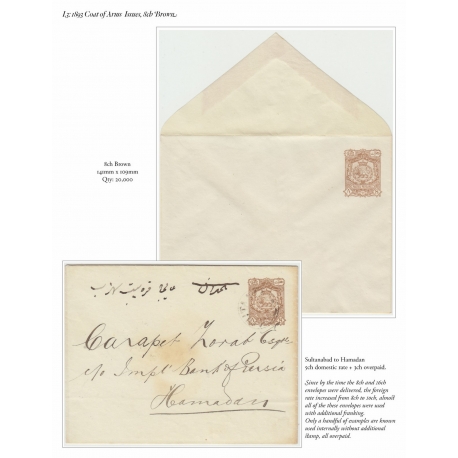 I.3: 1893 Coat of Arms Issues, 8ch Brown.
8ch Brown
142mm x 109mm
Qty: 20,000
Carapet Zorab Esqre
c/o Impl Bank of Persia
Hamadan
Sultanabad to Hamadan
5ch domestic rate + 3ch overpaid.
Since by the time the 8ch and 16ch
envelopes were delivered, the foreign
rate increased from 8ch to 10ch, almost
all of these envelopes were used
with additional franking.
Only a handful of examples are known
used internally without additional
stamp, all overpaid.